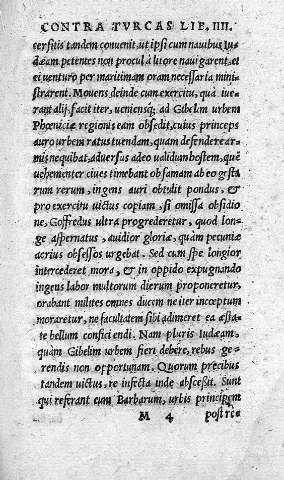 CONTRA TVRCAS LIB. IIII.
cersitis tandem conuenit, ut ipsi cum nauibus Iu-
dæam petentes non procul à litore nauigarent, et
ei uenturo per maritimam oram necessaria mini-
strarent. Mouens deinde cum exercitu, quà iue-
rant alij, facit iter, ueniensq; ad Gibelim urbem
Phœniciæ regionis eam obsedit, cuius princeps
auro urbem ratus tuendam, quam defendere ar-
mis nequibat, aduersus adeo ualidum hostem, quē
uehementer ciues timebant ob famam ab eo gesta
rum rerum, ingens auri obtulit pondus, &
pro exercitu uictus copiam, si omissa obsidio
ne, Goffredus ultra progrederetur, quod lon-
ge aspernatus, auidior gloriæ, quàm pecuniæ
acrius obsessos urgebat. Sed cum spe longior
intercederet mora, & in oppido expugnando
ingens labor multorum dierum proponeretur,
orabant milites omnes ducem ne iter incœptum
moraretur, ne facultatem sibi adimeret ea æsta-
te bellum conficiendi. Nam pluris Iudæam,
quàm Gibelim urbem fieri debere, rebus ge-
rendis non opportunam. Quorum precibus
tandem uictus, re infecta inde abscessit. Sunt
qui referant cum Barbarum, urbis principem
M 4 postree